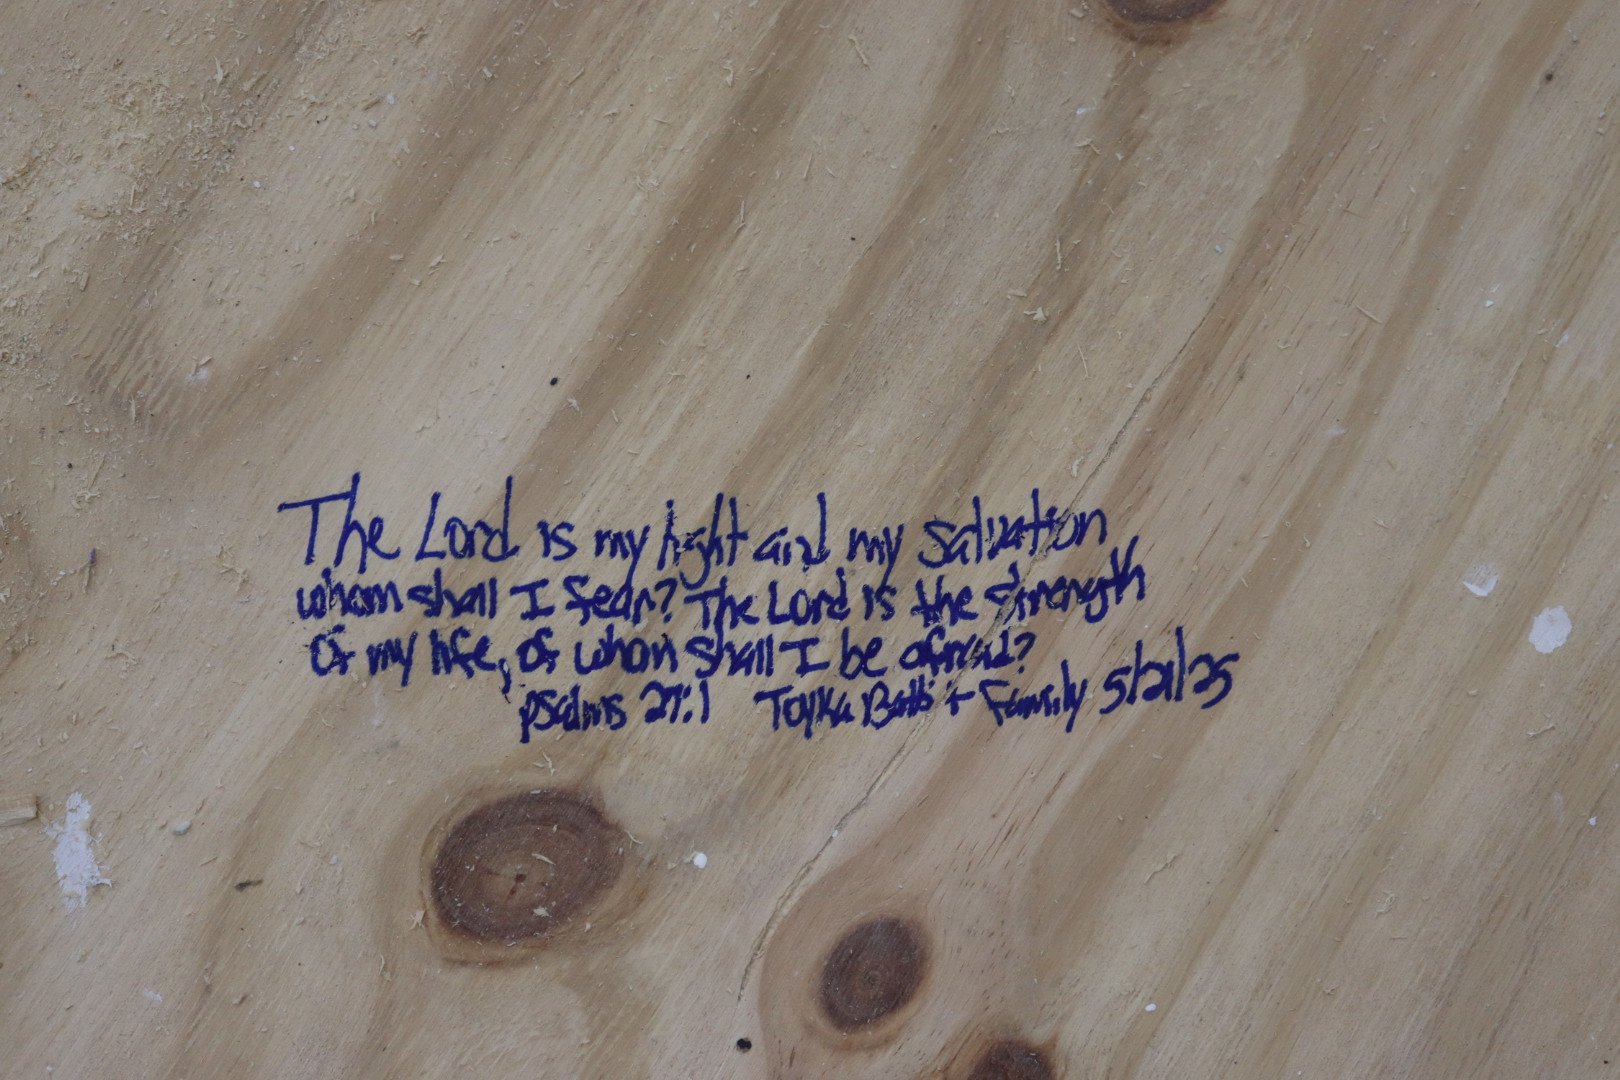 The Lord is my light and my salvation
whom shall I fear? The Lord is the strength
Of my life, of whom shall I be afraid?
psalms 27:1 Toyka Batts + Family 5/21/25